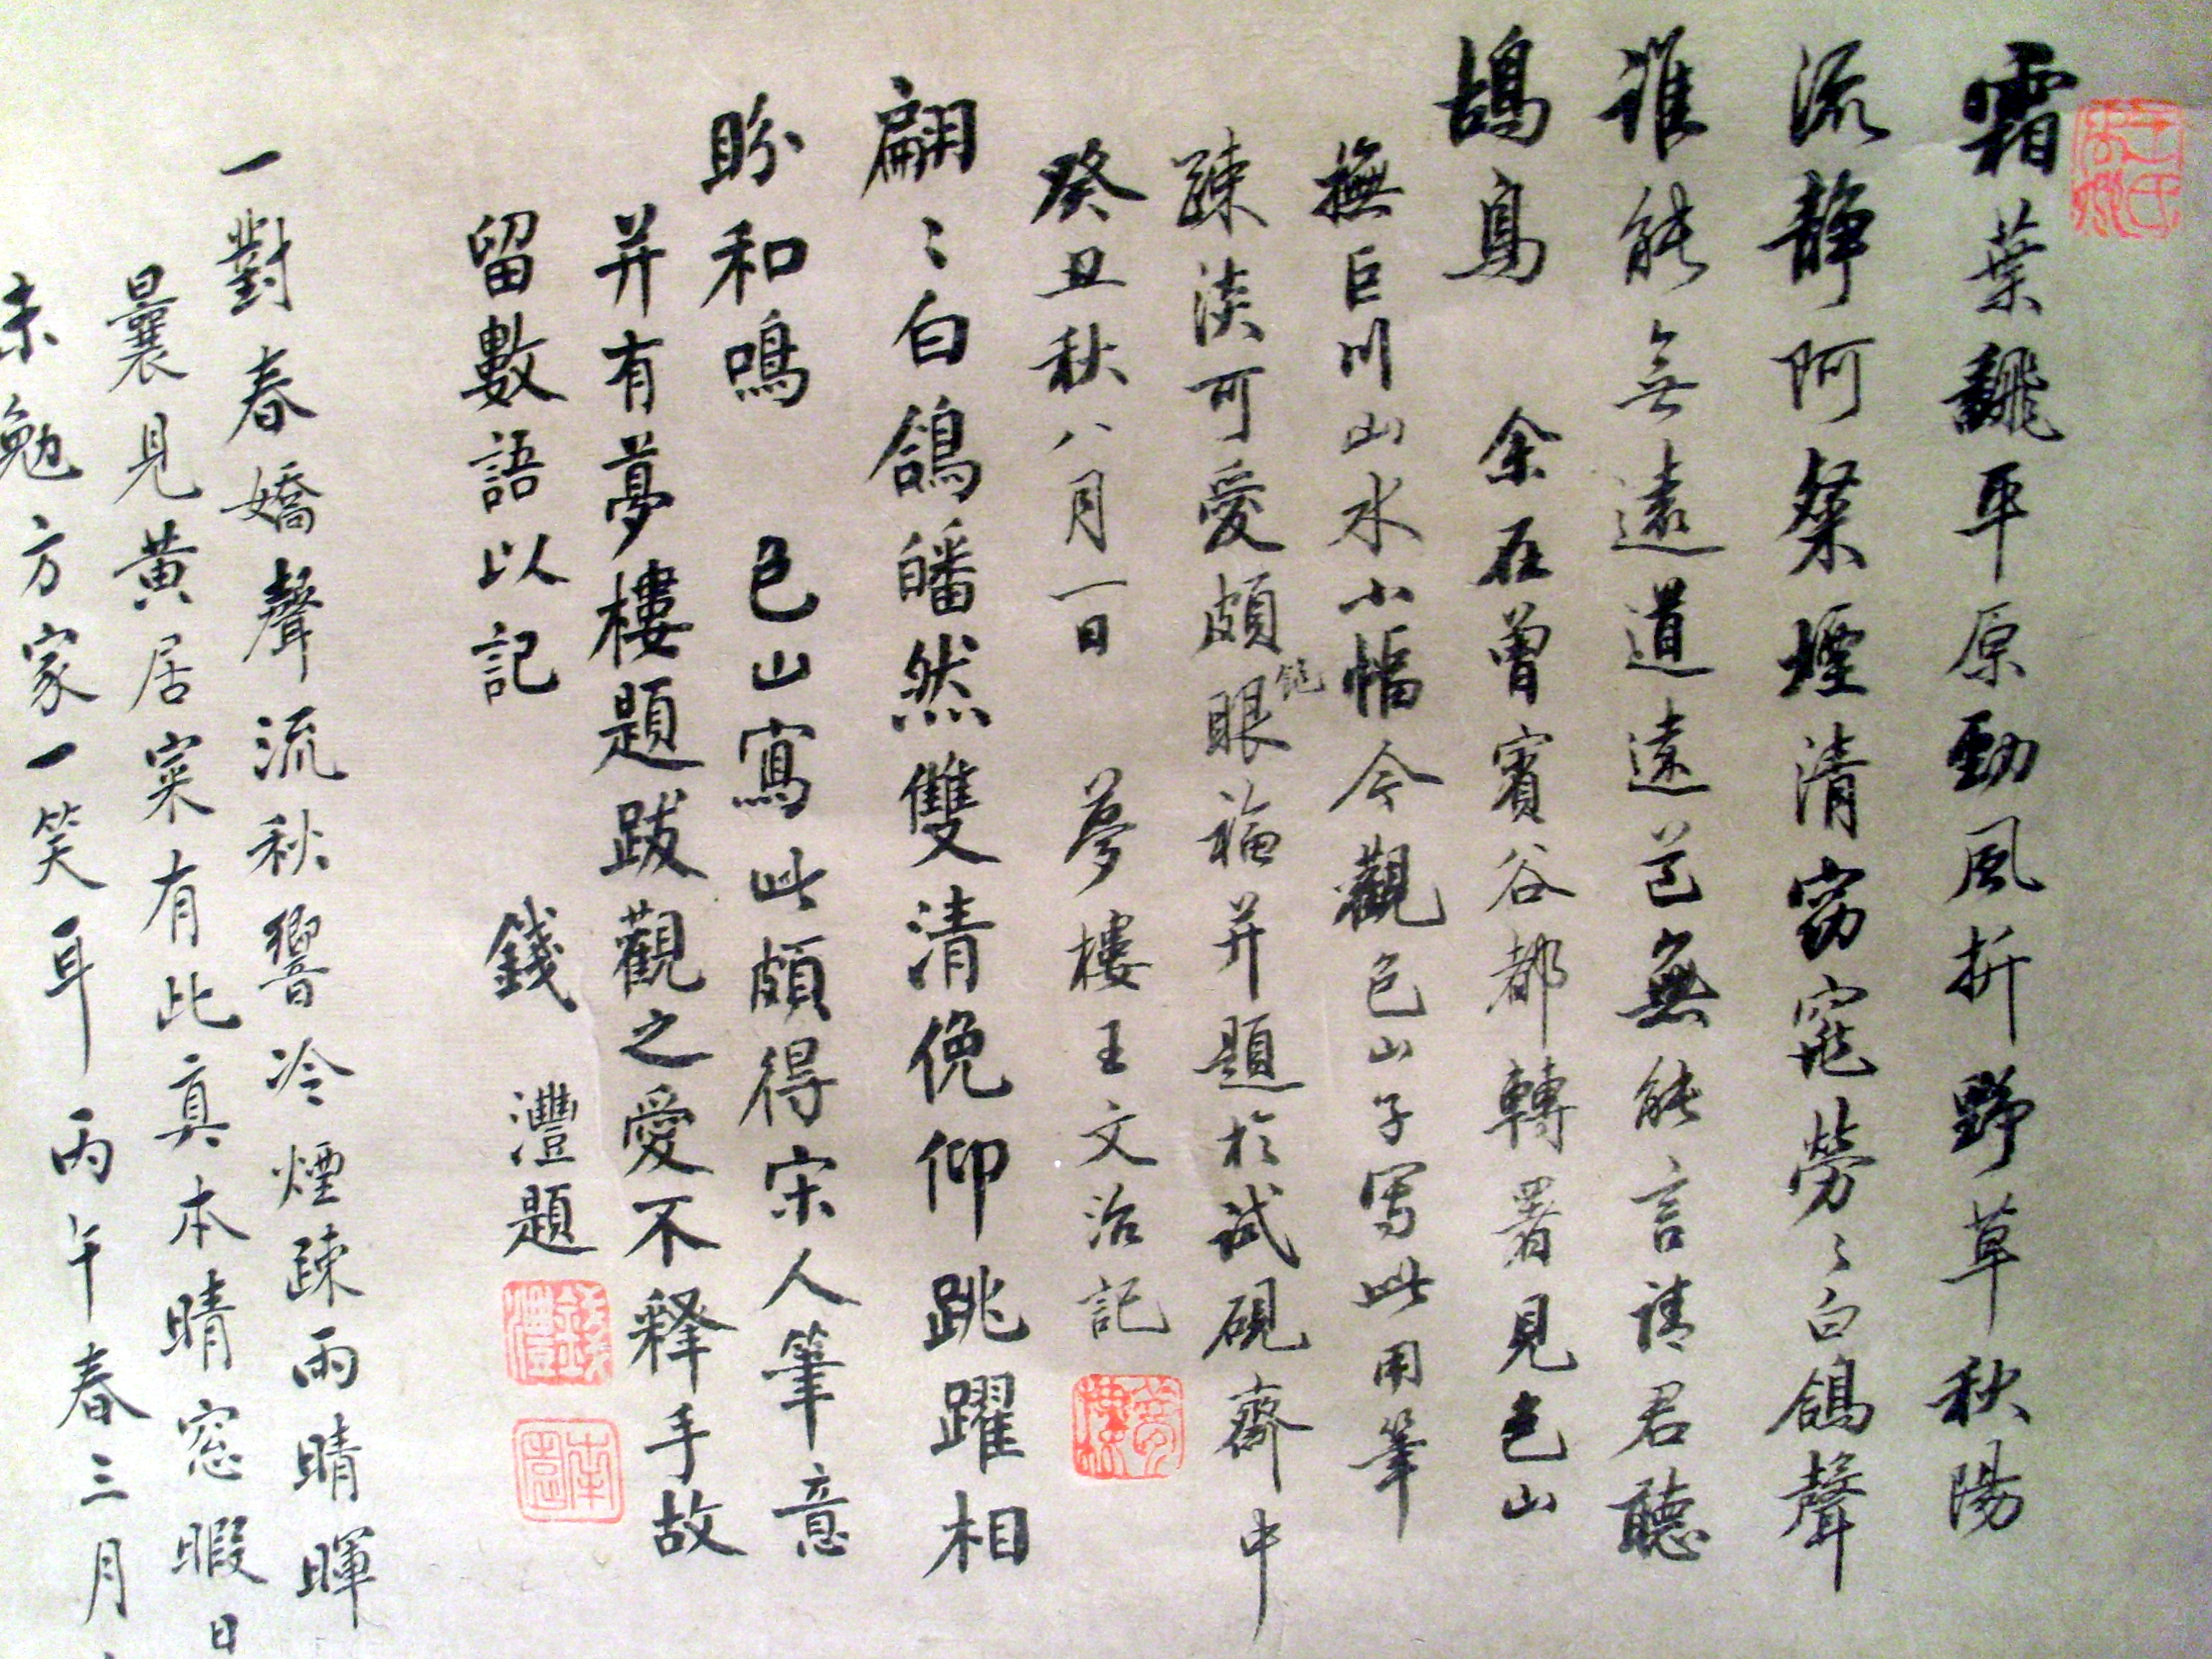 霜葉飄平原勁風折野草秋陽
流靜阿粲煙清窈窕勞〻白鴿聲
誰能無遠道遠芒無能言請君聽
鴣鳥 余在曾賓谷都轉署見色山
撫巨川山水小幅今觀色山子寫此用筆
疎淡可愛頗飽眼福并題於試硯齋中
癸丑秋八月一日 夢樓王文治記
翩〻白鴿皤然雙清俛仰跳躍相
盼和鳴 色山寫此頗得宋人筆意
并有夢樓題跋觀之愛不釋手故
留數語以記 錢灃題
一對春嬌聲流秋響冷煙疎雨晴暉
曩見黃居寀有此真本晴窓暇日
未勉方家一笑耳 丙午春三月